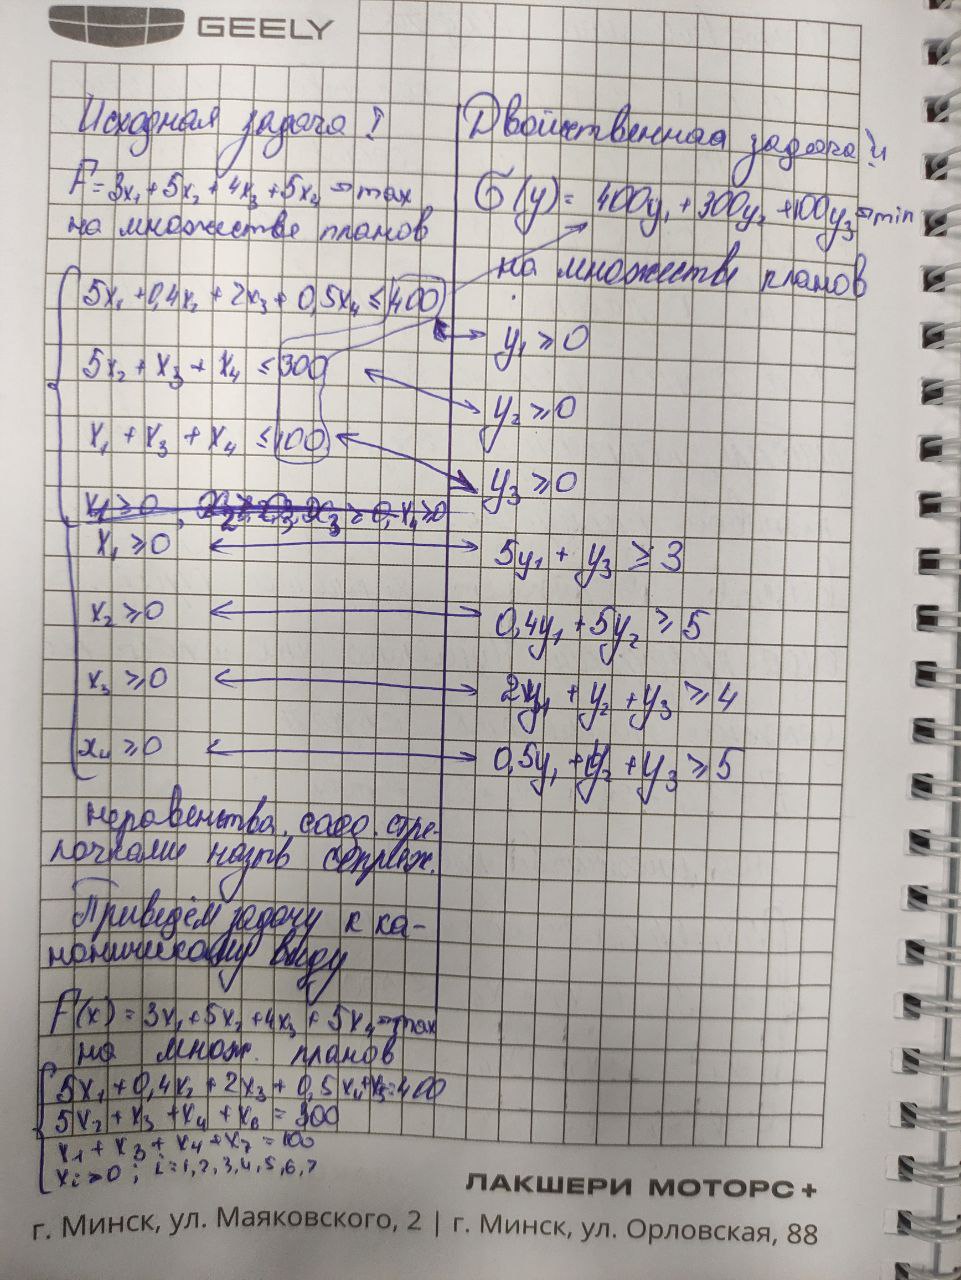 GEELY
Исходная задача I
F = 3x₁ + 5x₂ + 4x₃ + 5x₄ → max
на множестве планов
5x₁ + 0,4x₂ + 2x₃ + 0,5x₄ ≤ 400
5x₂ + x₃ + x₄ ≤ 300
x₁ + x₃ + x₄ ≤ 100
x₁ ≥ 0
x₂ ≥ 0
x₃ ≥ 0
x₄ ≥ 0
неравенства, соед. стре-
лочками назыв сопряж.
Приведём задачу к ка-
ноническому виду
F(x) = 3x₁ + 5x₂ + 4x₃ + 5x₄ → max
на множ. планов
5x₁ + 0,4x₂ + 2x₃ + 0,5x₄ + x₅ = 400
5x₂ + x₃ + x₄ + x₆ = 300
x₁ + x₃ + x₄ + x₇ = 100
xᵢ ≥ 0; i = 1,2,3,4,5,6,7
Двойственная задача
G(y) = 400y₁ + 300y₂ + 100y₃ → min
на множестве планов
y₁ ≥ 0
y₂ ≥ 0
y₃ ≥ 0
5y₁ + y₃ ≥ 3
0,4y₁ + 5y₂ ≥ 5
2y₁ + y₂ + y₃ ≥ 4
0,5y₁ + y₂ + y₃ ≥ 5
ЛАКШЕРИ МОТОРС+
г. Минск, ул. Маяковского, 2 | г. Минск, ул. Орловская, 88